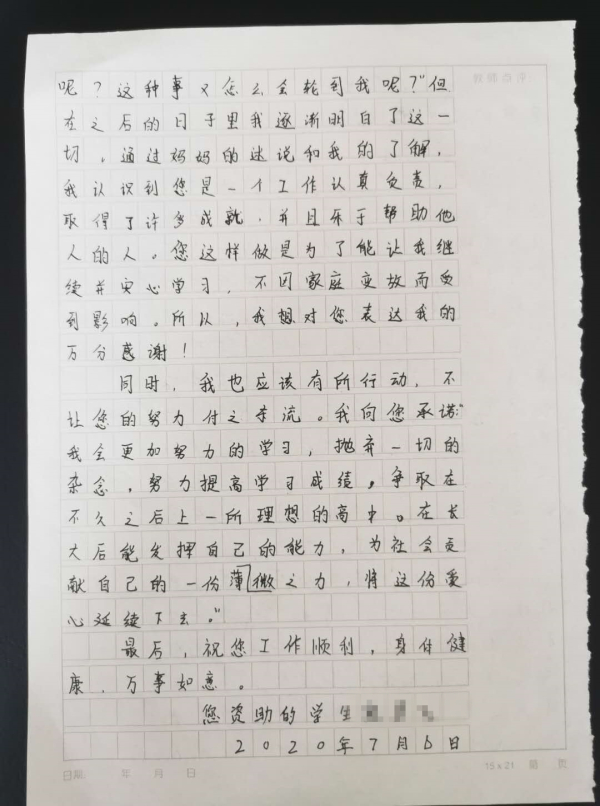 教师备课
呢？这种事又怎么会轮到我呢？"但
在之后的日子里我逐渐明白了这一
切。通过妈妈的述说和我的了解，
我认识到您是一个工作认真负责，
取得了许多成就，并且乐于帮助他
人的人。您这样做是为了能让我继
续并安心学习，不因家庭变故而受
到影响。所以，我想对您表达我的
万分感谢！
同时，我也应该有所行动，不
让您的努力付之东流。我向您承诺："
我会更加努力的学习，抛弃一切的
杂念，努力提高学习成绩，争取在
不久之后上一所理想的高中。在长
大后能发挥自己的能力，为社会贡
献自己的一份薄微之力，将这份爱
心延续下去。"
最后，祝您工作顺利，身体健
康，万事如意。
您资助的学生
2020年7月6日
日期 年 月 日 15×21 第 页